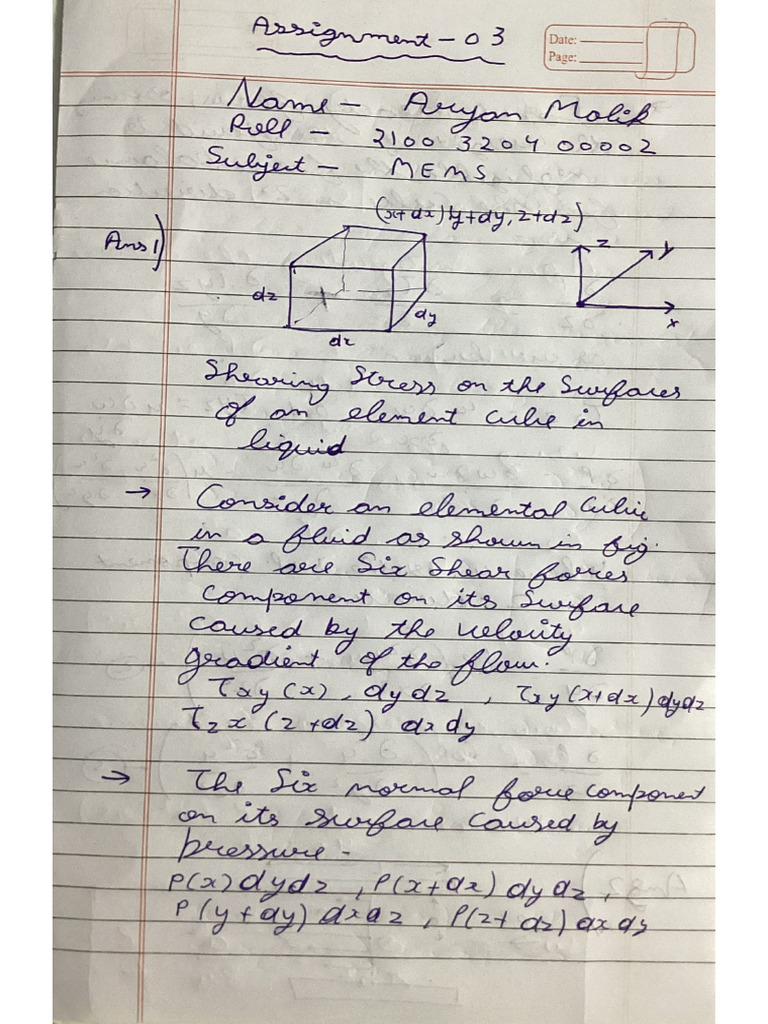 Assignment - 03
Date:
Page:
Name - Aryan Malik
Roll - 2100 3204 00002
Subject - MEMS
(x+dx) (y+dy, z+dz)
Ans 1)
z
y
x
dz
dy
dx
Shearing Stress on the Surfaces
of an element cube in
liquid
→ Consider an elemental Cubic
in a fluid as shown in fig.
There are Six Shear forces
component on its Surface
caused by the velocity
gradient of the flow.
τxy (x), dydz , τxy (x+dx) dydz
τzx (z+dz) dx dy
→ The Six normal force component
on its surface caused by
pressure -
P(x) dydz , P(x+dx) dydz ,
P(y+dy) dxdz , P(z+dz) dx dy